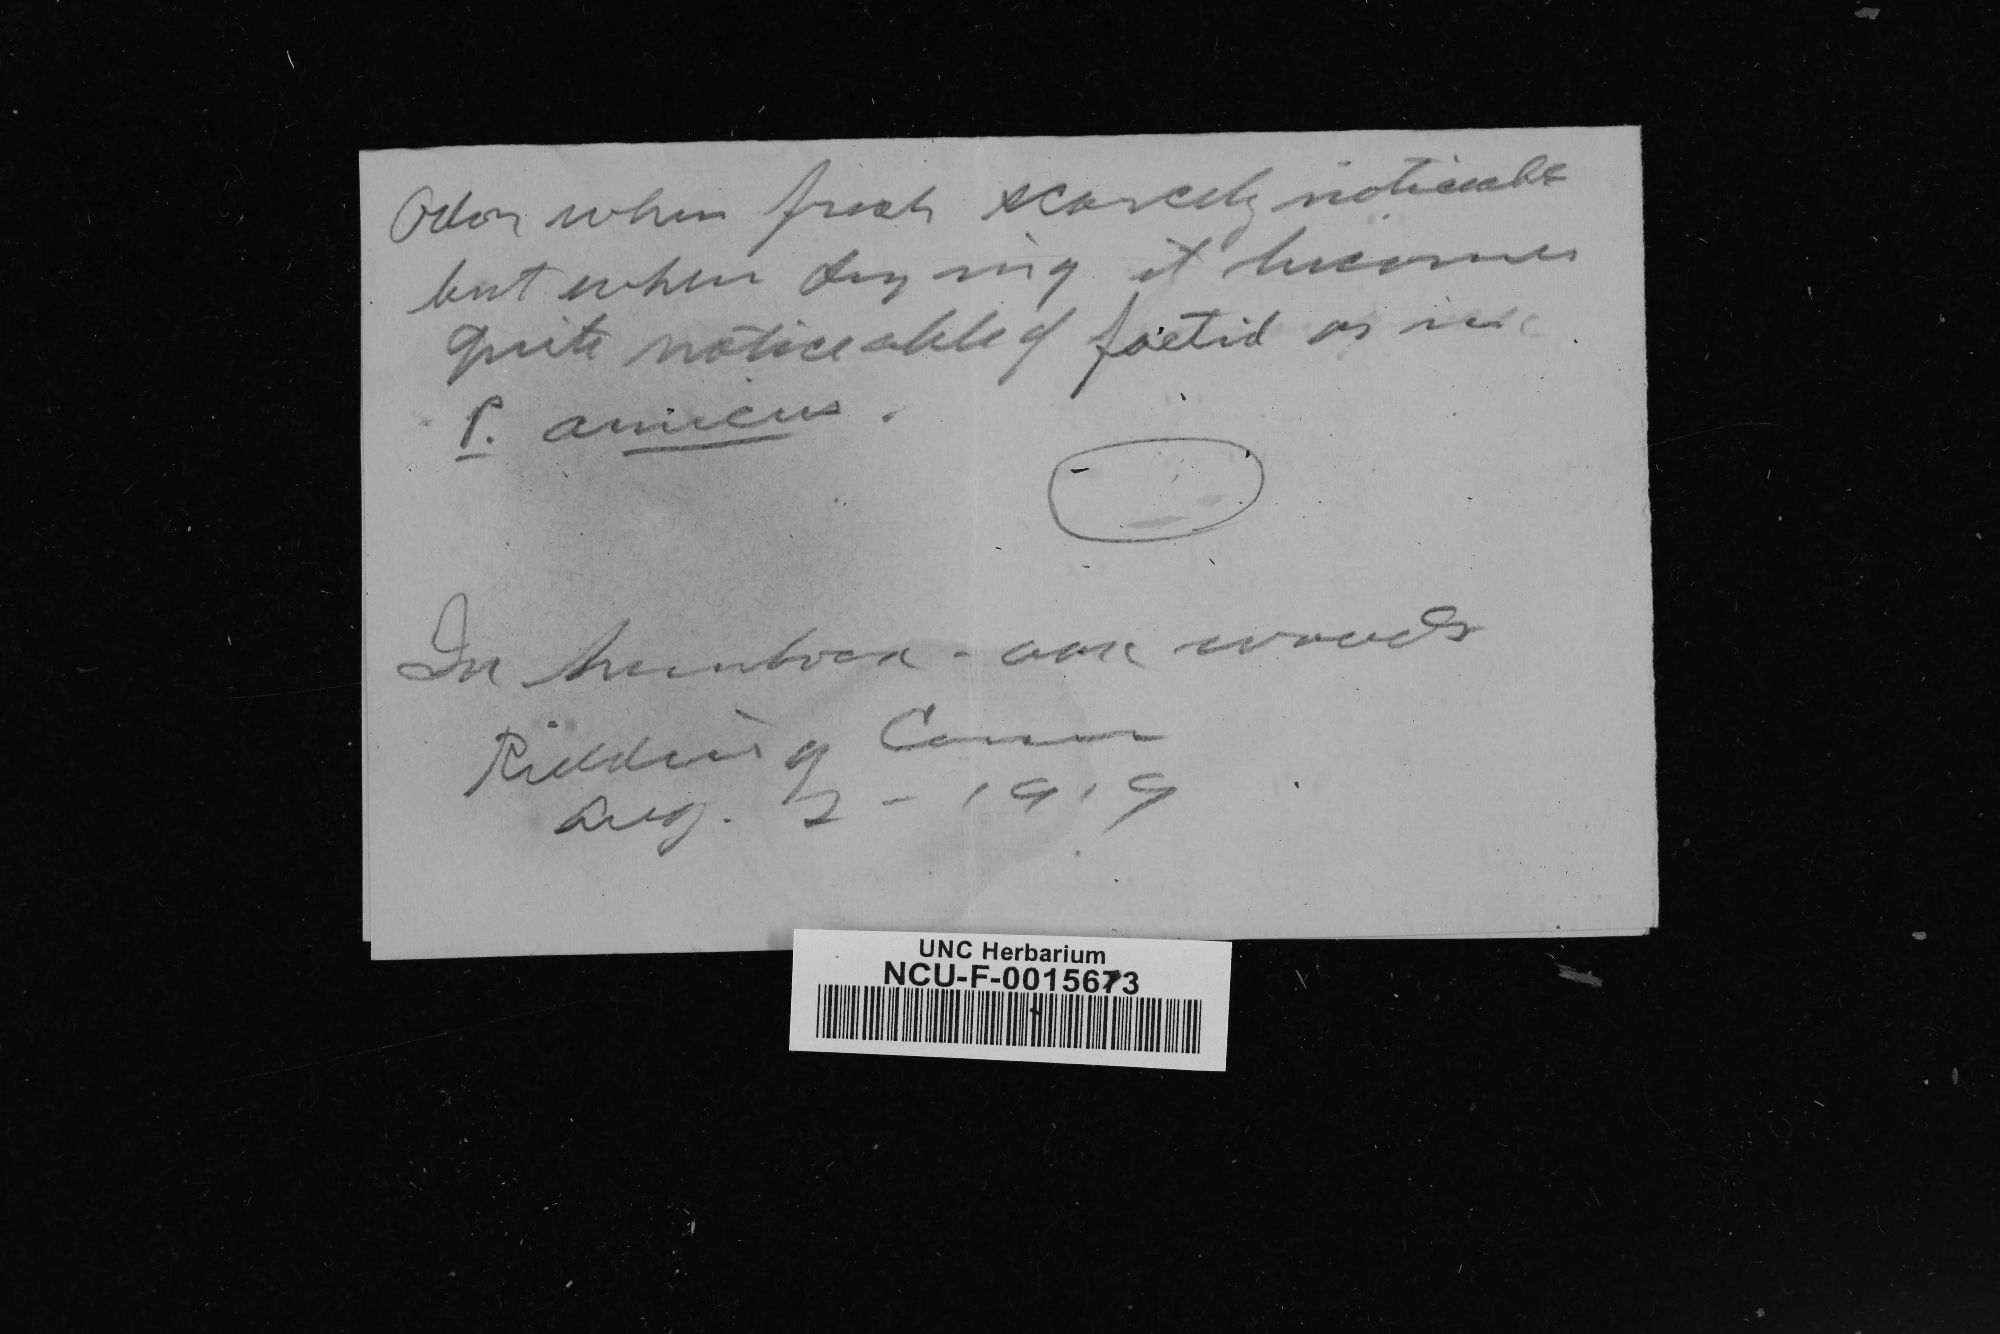 Odor when fresh scarcely noticeable
but when drying it becomes
quite noticeably foetid as in
P. amicus.
In hemlock-oak woods
Redding Conn
Aug. 2 - 1919
UNC Herbarium
NCU-F-0015673